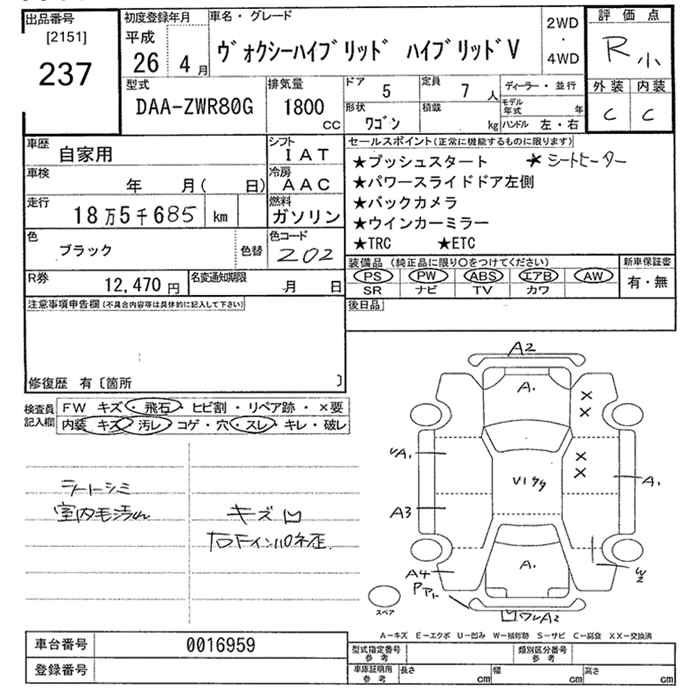 出品番号
[2151]
237
初度登録年月
平成
26 4月
車名・グレード
ヴォクシーハイブリッド ハイブリッドV
2WD
・
4WD
評価点
R小
外装 内装
C C
型式
DAA-ZWR80G
排気量
1800
CC
ドア 5
定員 7 人
ディーラー・並行
モデル年式 年
形状 ワゴン
積載 kg
ハンドル 左・右
車歴 自家用
シフト IAT
車検 年 月( 日)
冷房 AAC
走行 18万5千685 km
燃料 ガソリン
色 ブラック
色替
色コード 202
R券 12,470円
名変通知期限 月 日
セールスポイント(正常に機能するものに限ります)
★プッシュスタート ★シートヒーター
★パワースライドドア左側
★バックカメラ
★ウインカーミラー
★TRC ★ETC
装備品(純正品に限り○をつけてください)
新車保証書
PS PW ABS エアB AW
有・無
SR ナビ TV カワ
後日品
注意事項申告欄(不具合内容等は具体的に記入して下さい)
修復歴 有〔箇所 〕
検査員記入欄
FW キズ・飛石・ヒビ割・リペア跡・×要
内装 キズ・汚レ・コゲ・穴・スレ・キレ・破レ
シートシミ
室内毛汚れ
キズ凹
A2
A1
×
×
×
×
A1
A1
A3
A1
A4
W2
A2
スペア
A-キズ E-エクボ U-凹み W-補修跡 S-サビ C-腐食 XX-交換済
車台番号 0016959
登録番号
型式指定番号 参考
類別区分番号 参考
車庫証明用 参考
長さ cm 幅 cm 高さ cm